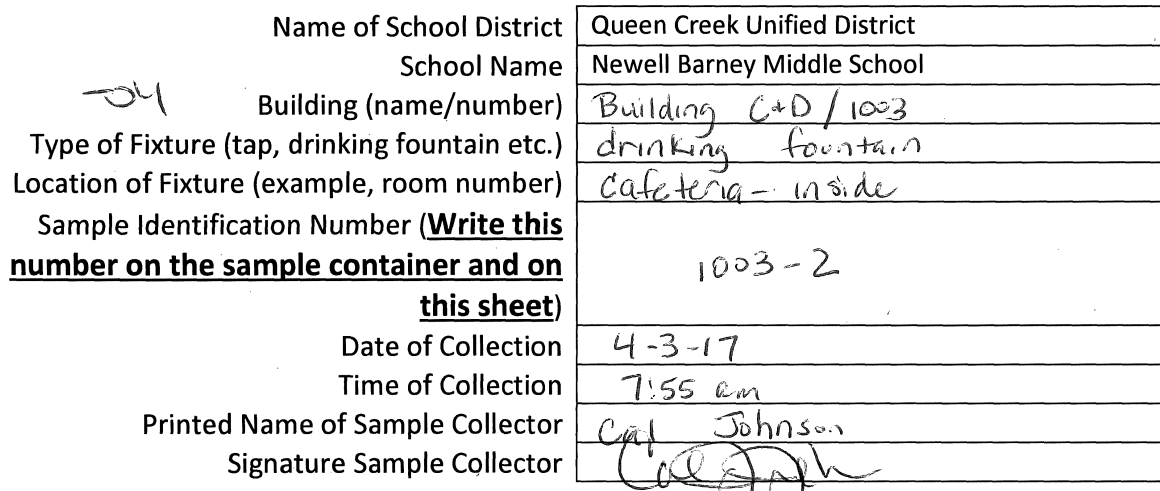 Name of School District Queen Creek Unified District
School Name Newell Barney Middle School
-04 Building (name/number) Building C+D / 1003
Type of Fixture (tap, drinking fountain etc.) drinking fountain
Location of Fixture (example, room number) Cafeteria - inside
Sample Identification Number (Write this
number on the sample container and on 1003-2
this sheet)
Date of Collection 4-3-17
Time of Collection 7:55 am
Printed Name of Sample Collector Cal Johnson
Signature Sample Collector